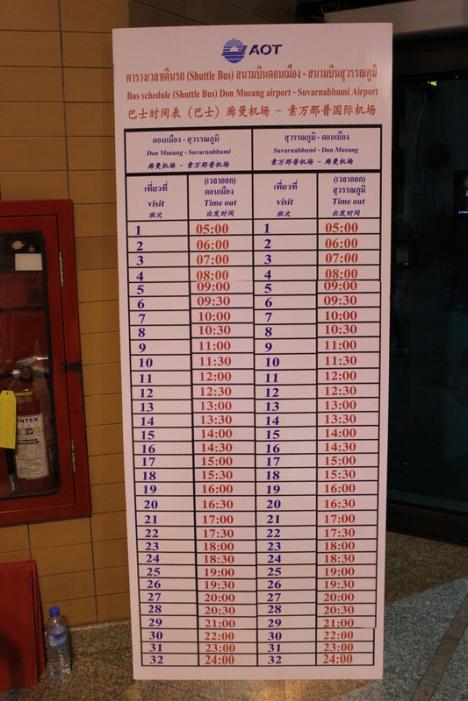 AOT
ตารางเวลาเดินรถ (Shuttle Bus) สนามบินดอนเมือง - สนามบินสุวรรณภูมิ
Bus schedule (Shuttle Bus) Don Mueang airport - Suvarnabhumi Airport
巴士时间表（巴士）廊曼机场 - 素万那普国际机场
ดอนเมือง - สุวรรณภูมิ สุวรรณภูมิ - ดอนเมือง
Don Mueang - Suvarnabhumi Suvarnabhumi - Don Mueang
廊曼机场 - 素万那普机场 素万那普机场 - 廊曼机场
เที่ยวที่ (เวลาออก) เที่ยวที่ (เวลาออก)
ดอนเมือง สุวรรณภูมิ
visit Time out visit Time out
班次 出发时间 班次 出发时间
1 05:00 1 05:00
2 06:00 2 06:00
3 07:00 3 07:00
4 08:00 4 08:00
5 09:00 5 09:00
6 09:30 6 09:30
7 10:00 7 10:00
8 10:30 8 10:30
9 11:00 9 11:00
10 11:30 10 11:30
11 12:00 11 12:00
12 12:30 12 12:30
13 13:00 13 13:00
14 13:30 14 13:30
15 14:00 15 14:00
16 14:30 16 14:30
17 15:00 17 15:00
18 15:30 18 15:30
19 16:00 19 16:00
20 16:30 20 16:30
21 17:00 21 17:00
22 17:30 22 17:30
23 18:00 23 18:00
24 18:30 24 18:30
25 19:00 25 19:00
26 19:30 26 19:30
27 20:00 27 20:00
28 20:30 28 20:30
29 21:00 29 21:00
30 22:00 30 22:00
31 23:00 31 23:00
32 24:00 32 24:00